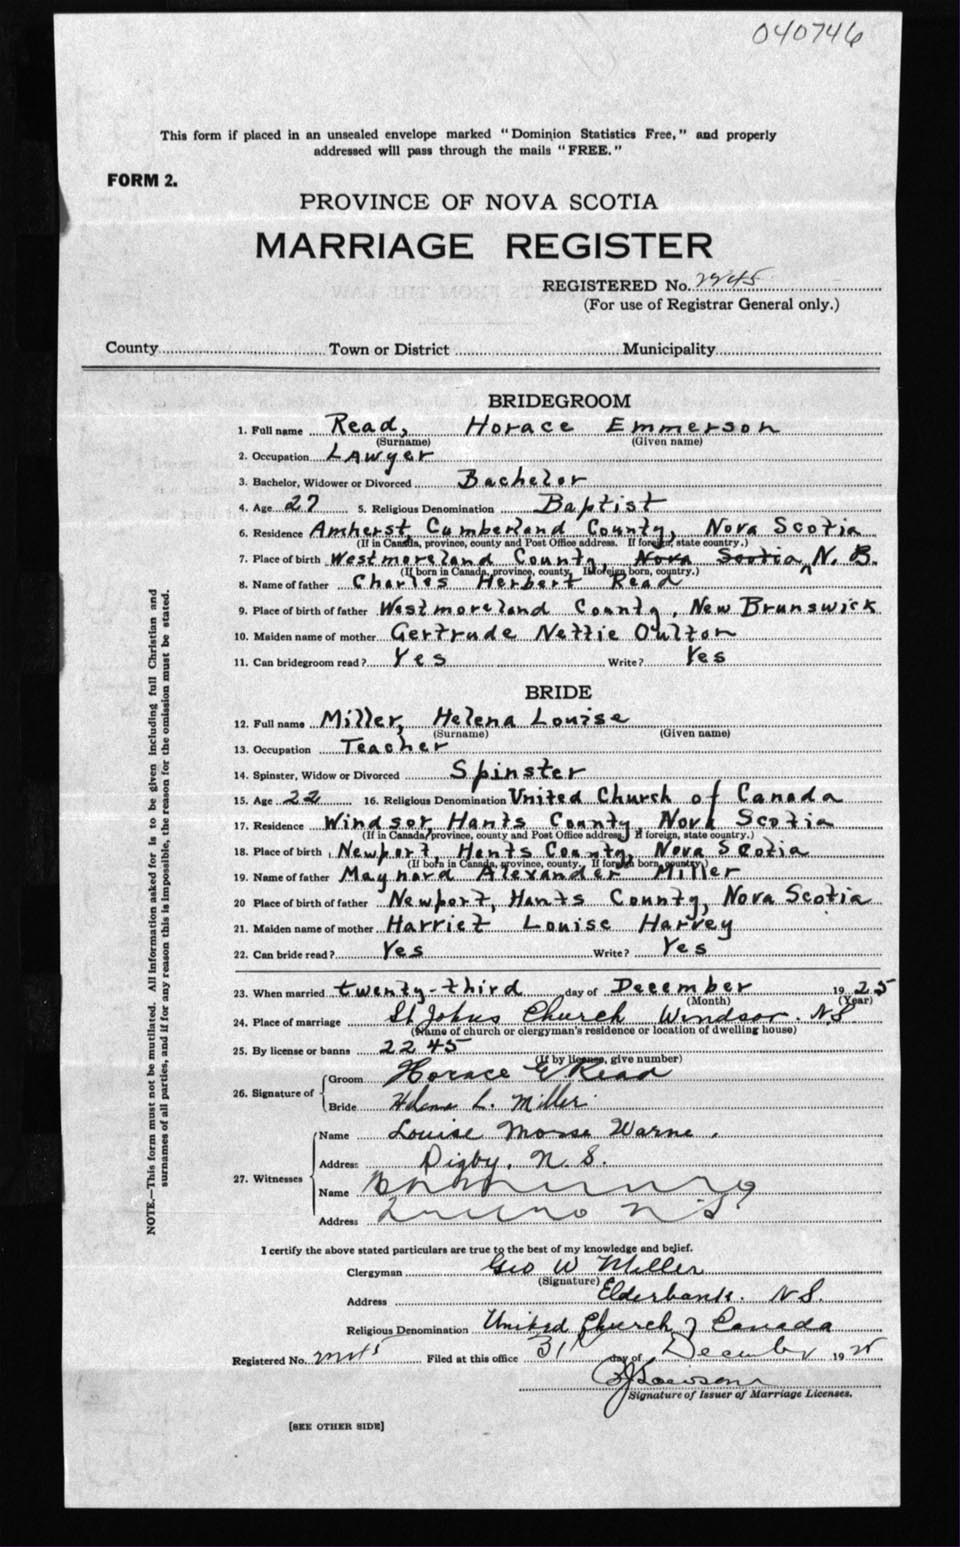 040746
This form if placed in an unsealed envelope marked "Dominion Statistics Free," and properly
addressed will pass through the mails "FREE."
FORM 2.
PROVINCE OF NOVA SCOTIA
MARRIAGE REGISTER
REGISTERED No. 2245
(For use of Registrar General only.)
County Town or District Municipality
BRIDEGROOM
1. Full name Read, Horace Emmerson
(Surname) (Given name)
2. Occupation Lawyer
3. Bachelor, Widower or Divorced Bachelor
4. Age 27 5. Religious Denomination Baptist
6. Residence Amherst, Cumberland County, Nova Scotia
(If in Canada, province, county and Post Office address. If foreign, state country.)
7. Place of birth Westmoreland County, Nova Scotia N. B.
(If born in Canada, province, county. If foreign born, country.)
8. Name of father Charles Herbert Read
9. Place of birth of father Westmoreland County, New Brunswick
10. Maiden name of mother Gertrude Nettie Oulton
11. Can bridegroom read? Yes Write? Yes
BRIDE
12. Full name Miller, Helena Louise
(Surname) (Given name)
13. Occupation Teacher
14. Spinster, Widow or Divorced Spinster
15. Age 22 16. Religious Denomination United Church of Canada
17. Residence Windsor Hants County, Nova Scotia
(If in Canada, province, county and Post Office address. If foreign, state country.)
18. Place of birth Newport, Hants County, Nova Scotia
(If born in Canada, province, county. If foreign born, country.)
19. Name of father Maynard Alexander Miller
20 Place of birth of father Newport, Hants County, Nova Scotia
21. Maiden name of mother Harriet Louise Harvey
22. Can bride read? Yes Write? Yes
23. When married twenty-third day of December 1925
(Month) (Year)
24. Place of marriage St Johns Church Windsor. N.S
(Name of church or clergyman's residence or location of dwelling house)
25. By license or banns 2245
(If by license, give number)
26. Signature of Groom Horace E Read
Bride Helena L. Miller
27. Witnesses Name Louise Morse Warne.
Address Digby, N. S.
Name
Address N S
I certify the above stated particulars are true to the best of my knowledge and belief.
Clergyman Geo W Miller
(Signature)
Address Elderbank. N S.
Religious Denomination United Church of Canada
Registered No. Filed at this office 31st day of December 1925
Signature of Issuer of Marriage Licenses.
[SEE OTHER SIDE]
NOTE.—This form must not be mutilated. All information asked for is to be given including full Christian and
surnames of all parties, and if for any reason this is impossible, the reason for the omission must be stated.